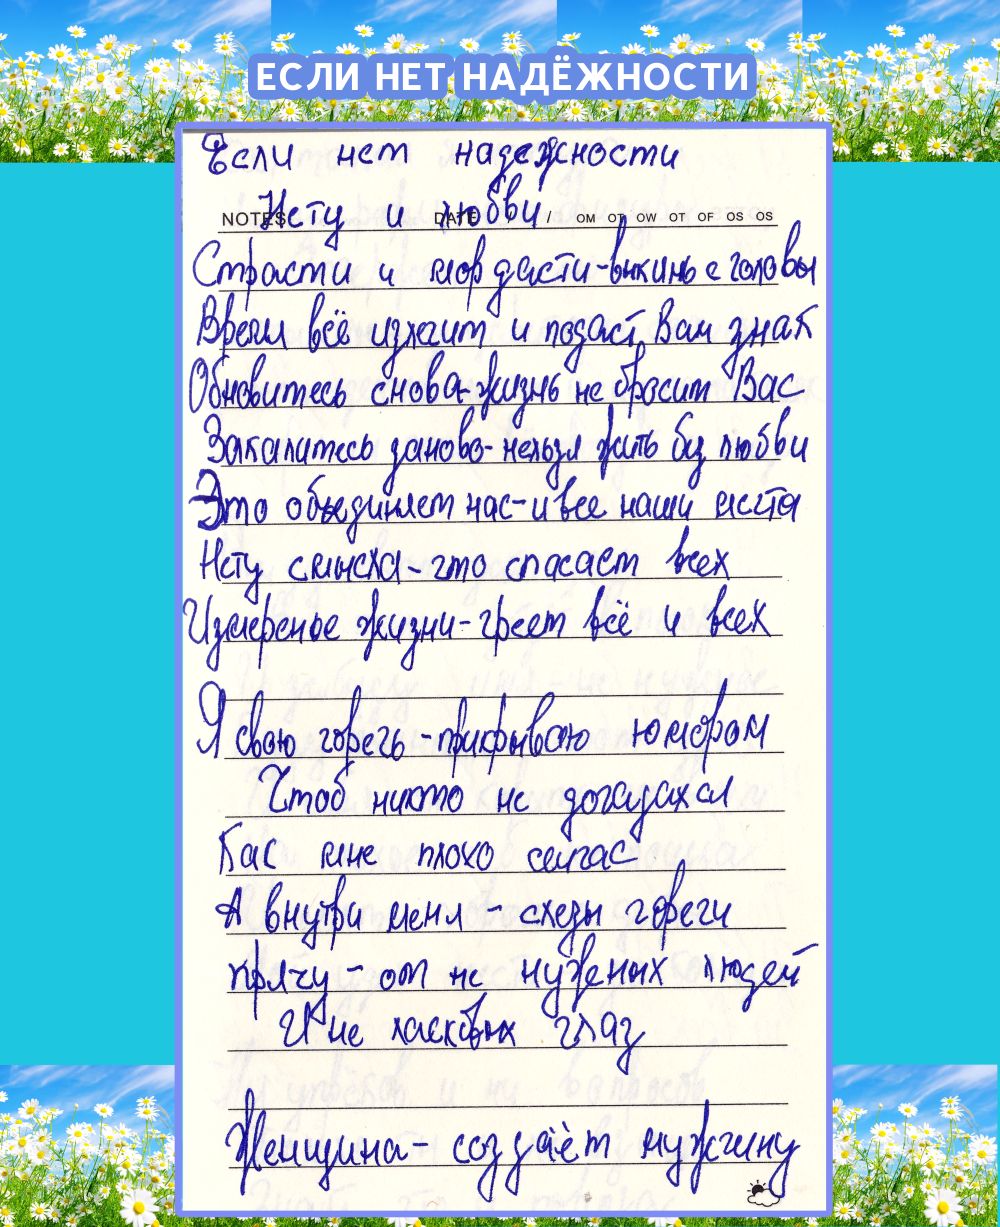 ЕСЛИ НЕТ НАДЁЖНОСТИ
Если нет надежности
NOTES DATE / / ОМ ОТ OW ОТ OF OS OS
Нету и любви
Страсти и мордасти-выкинь с головы
Время всё излечит и подаст Вам знак
Обновитесь снова-жизнь не бросит Вас
Закалитесь заново-нельзя жить без любви
Это объединяет нас-и все наши места
Нету смысла-что спасает всех
Измеренье жизни-греет всё и всех
Я свою горечь-прикрываю юмором
Чтоб никто не догадался
Как мне плохо сейчас
А внутри меня-слезы горечи
прячу-от не нужных людей
И не ласковых глаз
Женщина-создаёт мужчину